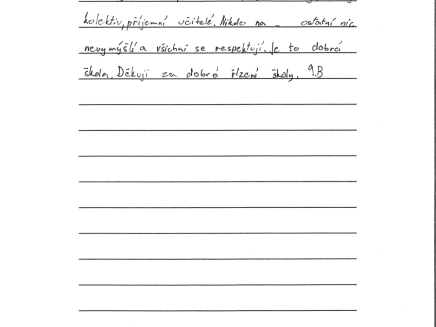 kolektiv, příjemní učitelé. Nikdo na - ostatní nic
nevymýšlí a všichni se respektují. Je to dobrá
škola. Děkuji za dobré řízení školy. 9.B